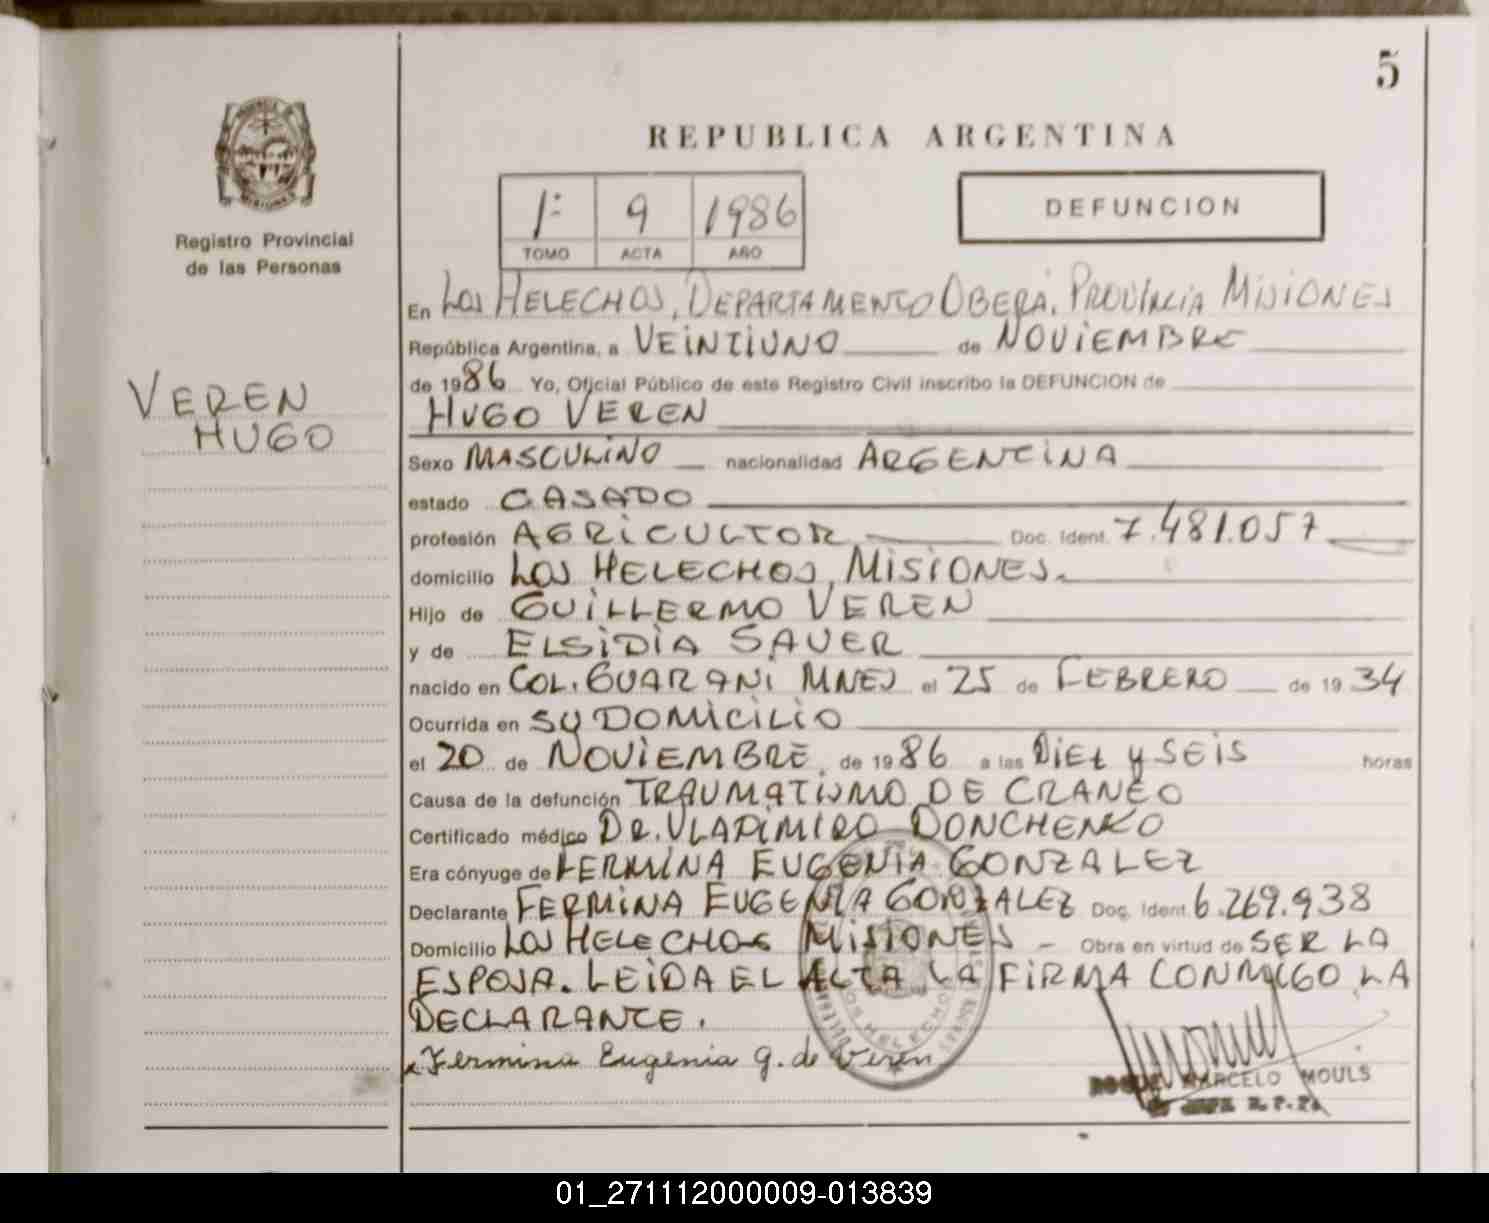 5
REPUBLICA ARGENTINA
1º 9 1986
TOMO ACTA AÑO
DEFUNCION
Registro Provincial
de las Personas
VEREN
HUGO
En LOS HELECHOS, DEPARTAMENTO OBERÁ, PROVINCIA MISIONES
República Argentina, a VEINTIUNO de NOVIEMBRE
de 1986 Yo, Oficial Público de este Registro Civil inscribo la DEFUNCION de
HUGO VEREN
Sexo MASCULINO nacionalidad ARGENTINA
estado CASADO
profesión AGRICULTOR Doc. Ident. 7.481.057
domicilio LOS HELECHOS, MISIONES.
Hijo de GUILLERMO VEREN
y de ELSIDIA SAUER
nacido en COL. GUARANI MNES el 25 de FEBRERO de 1934
Ocurrida en SU DOMICILIO
el 20 de NOVIEMBRE de 1986 a las DIEZ y SEIS horas
Causa de la defunción TRAUMATISMO DE CRANEO
Certificado médico DR. VLADIMIRO DONCHENKO
Era cónyuge de FERMINA EUGENIA GONZALEZ
Declarante FERMINA EUGENIA GONZALEZ Doc. Ident. 6.269.938
Domicilio LOS HELECHOS MISIONES - Obra en virtud de SER LA
ESPOSA. LEIDA EL ACTA LA FIRMA CONMIGO LA
DECLARANTE.
x Fermina Eugenia G. de Veren
ROQUE MARCELO MOULS
LOS HELECHOS
01_271112000009-013839